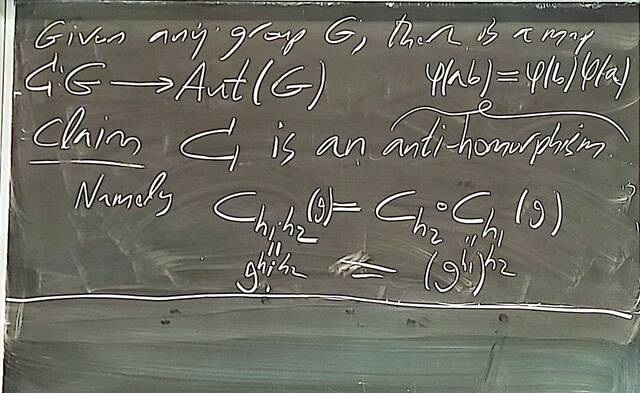 Given any group G, there is a map
C: G → Aut(G) φ(ab) = φ(b) φ(a)
Claim C is an anti-homorphism.
Namely C_{h₁·h₂}(g) = C_{h₂} ∘ C_{h₁}(g)
g^{h₁·h₂} = (g^{h₁})^{h₂}